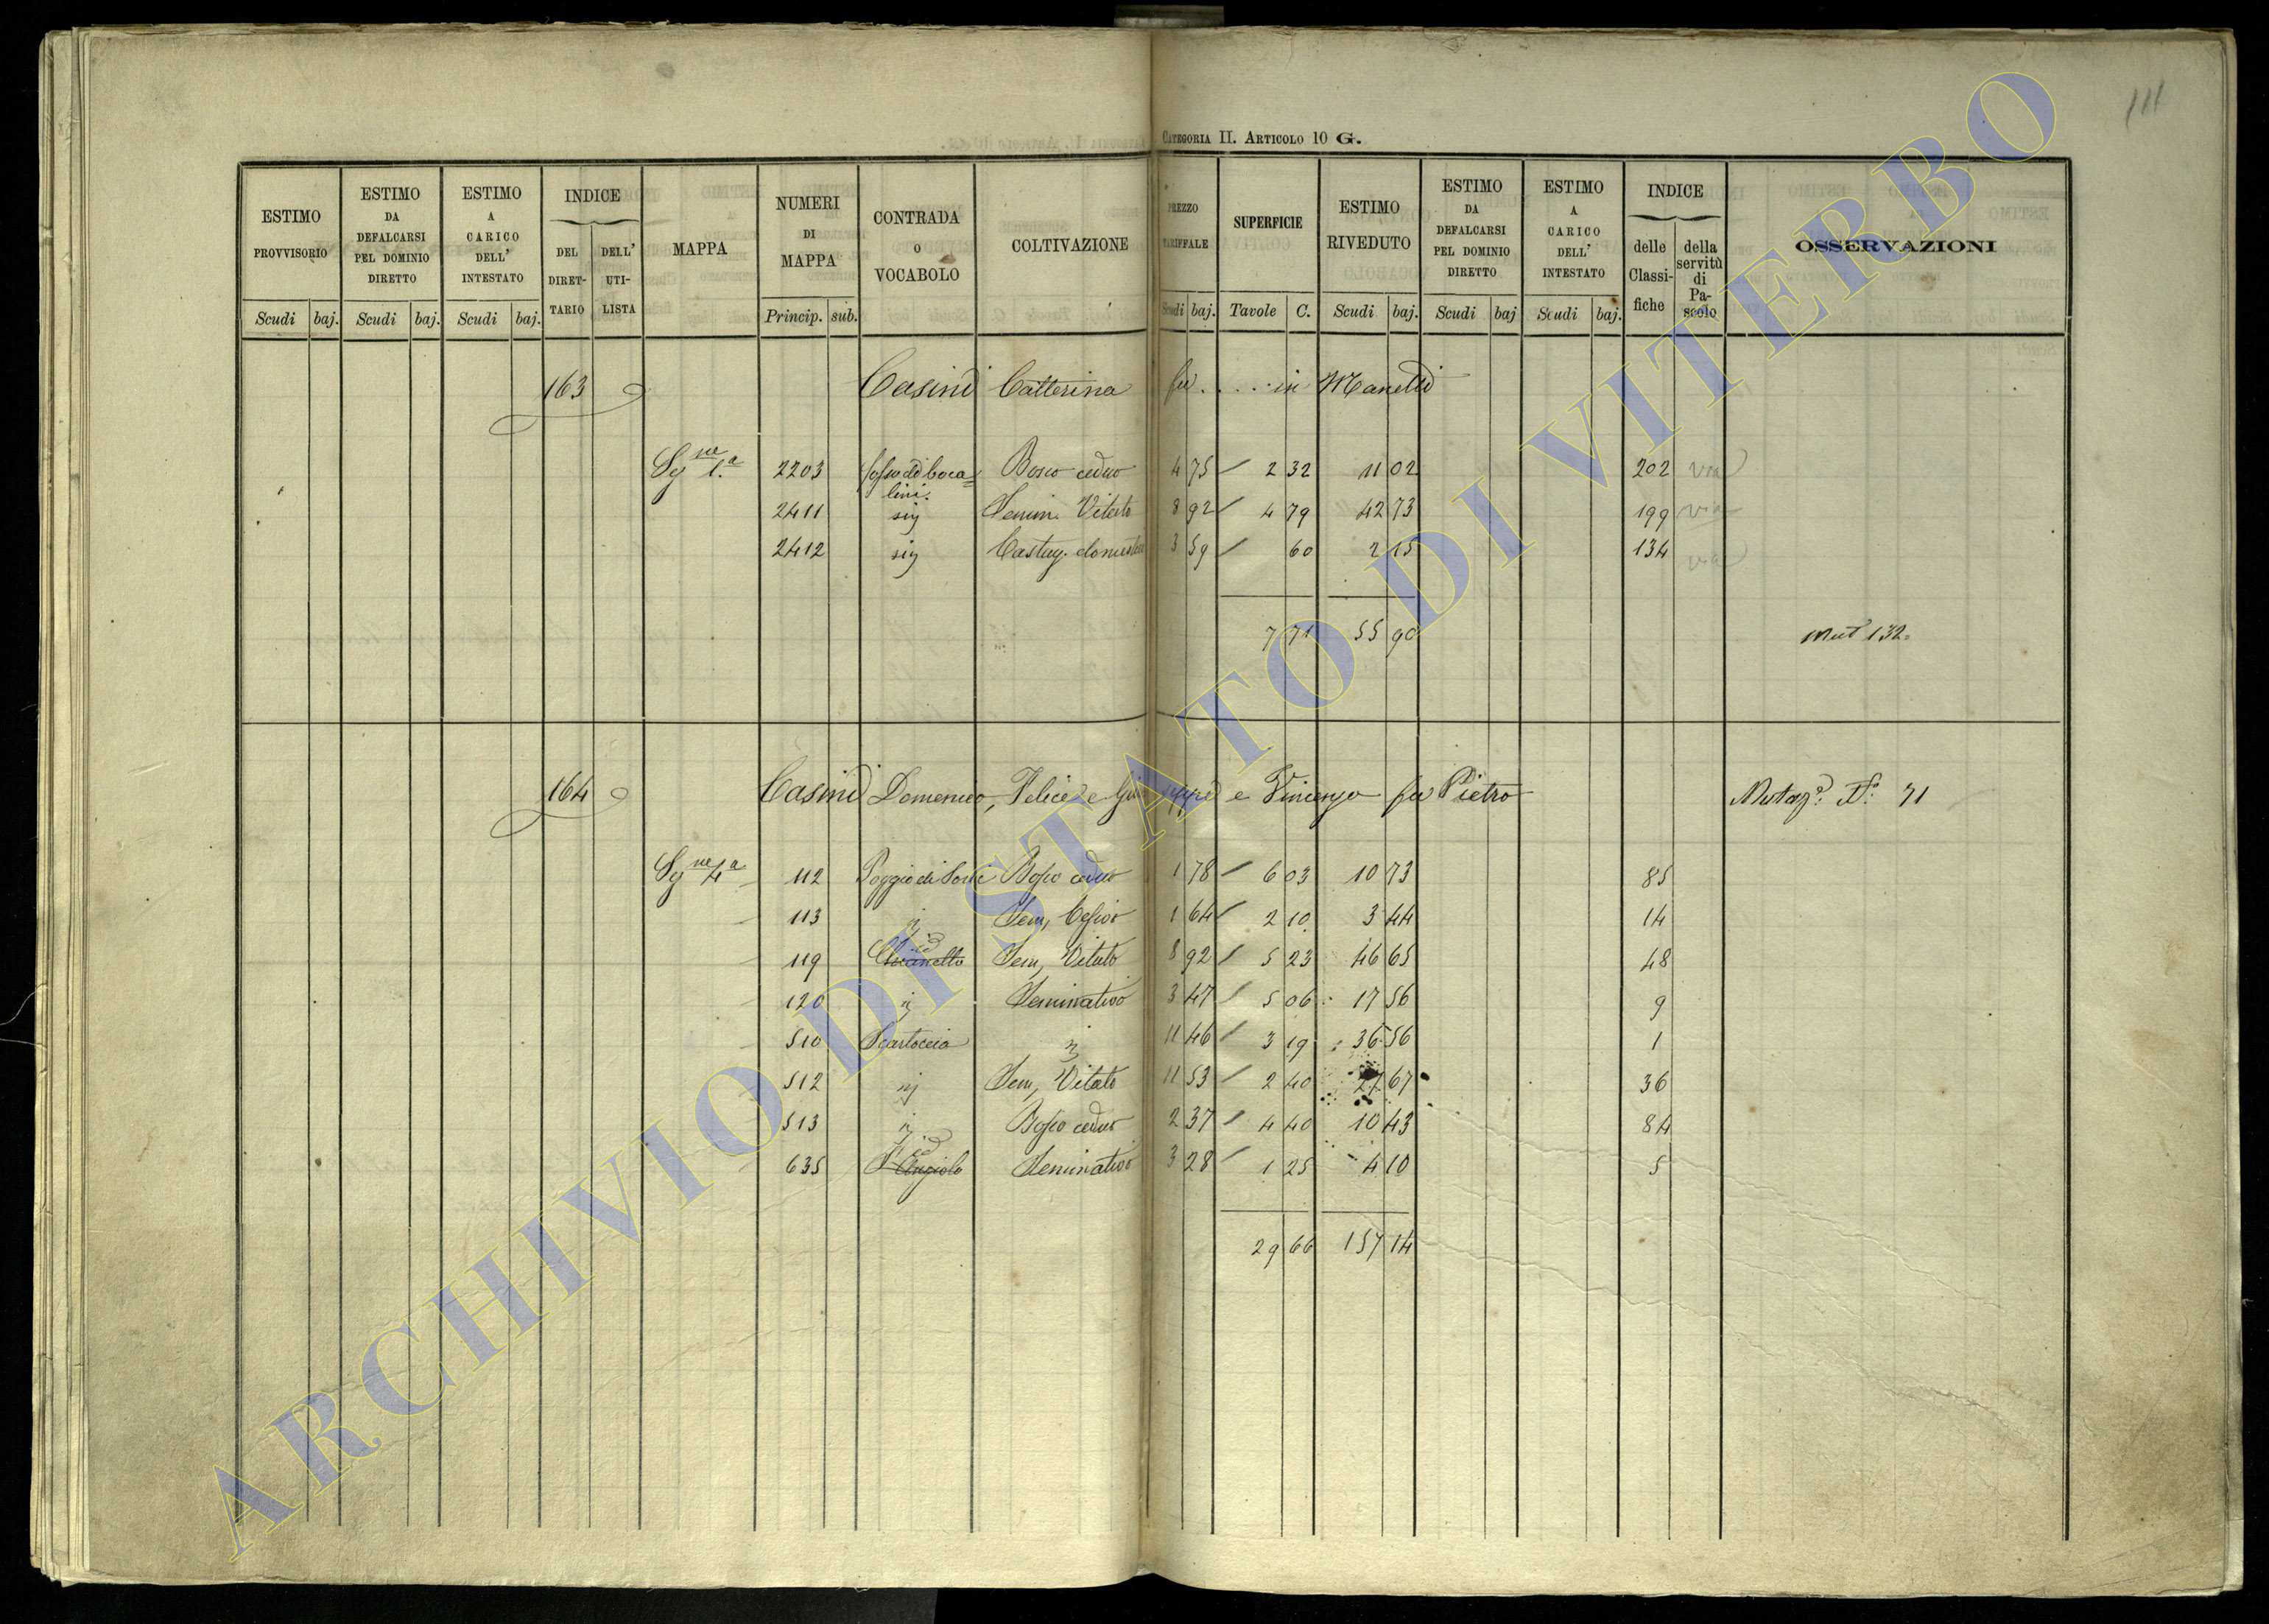 111
CATEGORIA II. ARTICOLO 10 G.
ESTIMO PROVVISORIO
ESTIMO DA DEFALCARSI PEL DOMINIO DIRETTO
ESTIMO A CARICO DELL' INTESTATO
INDICE
DEL DIRET-TARIO
DELL' UTI-LISTA
MAPPA
NUMERI DI MAPPA
CONTRADA O VOCABOLO
COLTIVAZIONE
PREZZO TARIFFALE
SUPERFICIE
ESTIMO RIVEDUTO
ESTIMO DA DEFALCARSI PEL DOMINIO DIRETTO
ESTIMO A CARICO DELL' INTESTATO
INDICE
delle Classi-fiche
della servitù di Pa-scolo
OSSERVAZIONI
Scudi baj. Scudi baj. Scudi baj. Princip. sub. Scudi baj. Tavole C. Scudi baj. Scudi baj Scudi baj.
163 Casini Catterina fu . . . . in Manetti
Sez ne 1.a 2203 fosso di Boca= Bosco ceduo 4 75 2 32 11 02 202 via
lini.
2411 Semin. Vitato 8 92 4 79 42 73 199 via
2412 Castag. domestico 3 59 60 2 15 134 via
7 71 55 90 Mut 132
164 Casini Domenico, Felice e Giuseppe e Vincenzo fu Pietro Mutaz.e N.o 71
Sez ne 4a 112 Poggio di Bosco ceduo 1 78 6 03 10 73 85
113 Sem, 1 64 2 10 3 44 14
id
119 Sem, Vitato 8 92 5 23 46 65 48
120 Seminativo 3 47 5 06 17 56 9
510 Scartoccia 11 46 3 19 36 56 1
512 Sem, Vitato 11 53 2 40 27 67 36
513 Bosco ceduo 2 37 4 40 10 43 84
id
635 Seminativo 3 28 1 25 4 10 5
29 66 157 14
ARCHIVIO DI STATO DI VITERBO